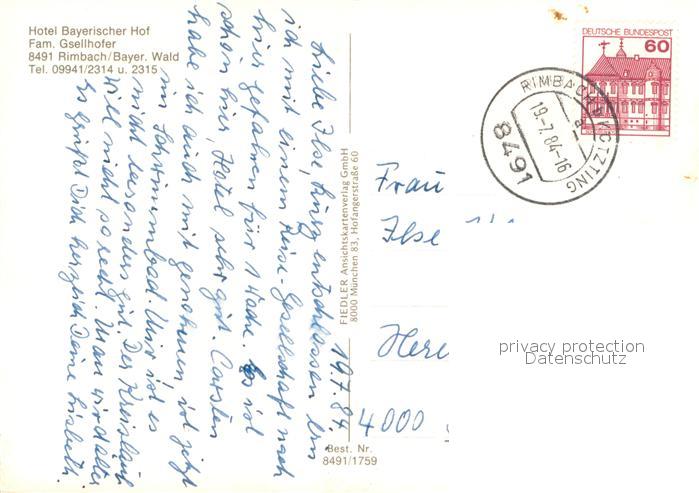 Hotel Bayerischer Hof
Fam. Gsellhofer
8491 Rimbach/Bayer. Wald
Tel. 09941/2314 u. 2315
19.7.84
Liebe Ilse, kurz entschlossen bin
ich mit einem Reise-Gesellschaft nach
hier gefahren für 1 Woche. Es ist
schön hier, Hotel sehr gut. Carsten
habe ich auch mit genommen ist jetzt
im Schwimmbad. Mir ist es
nicht besonders gut. Der Kreislauf
will nicht so recht. Man wird älter
Es grüßt Dich herzlich Deine Lisbeth.
FIEDLER Ansichtskartenverlag GmbH
8000 München 83, Hofangerstraße 60
Best. Nr.
8491/1759
DEUTSCHE BUNDESPOST
60
RIMBACH KÖTZTING
a
19.-7.84-16
8491
Frau
Ilse
4000
privacy protection
Datenschutz